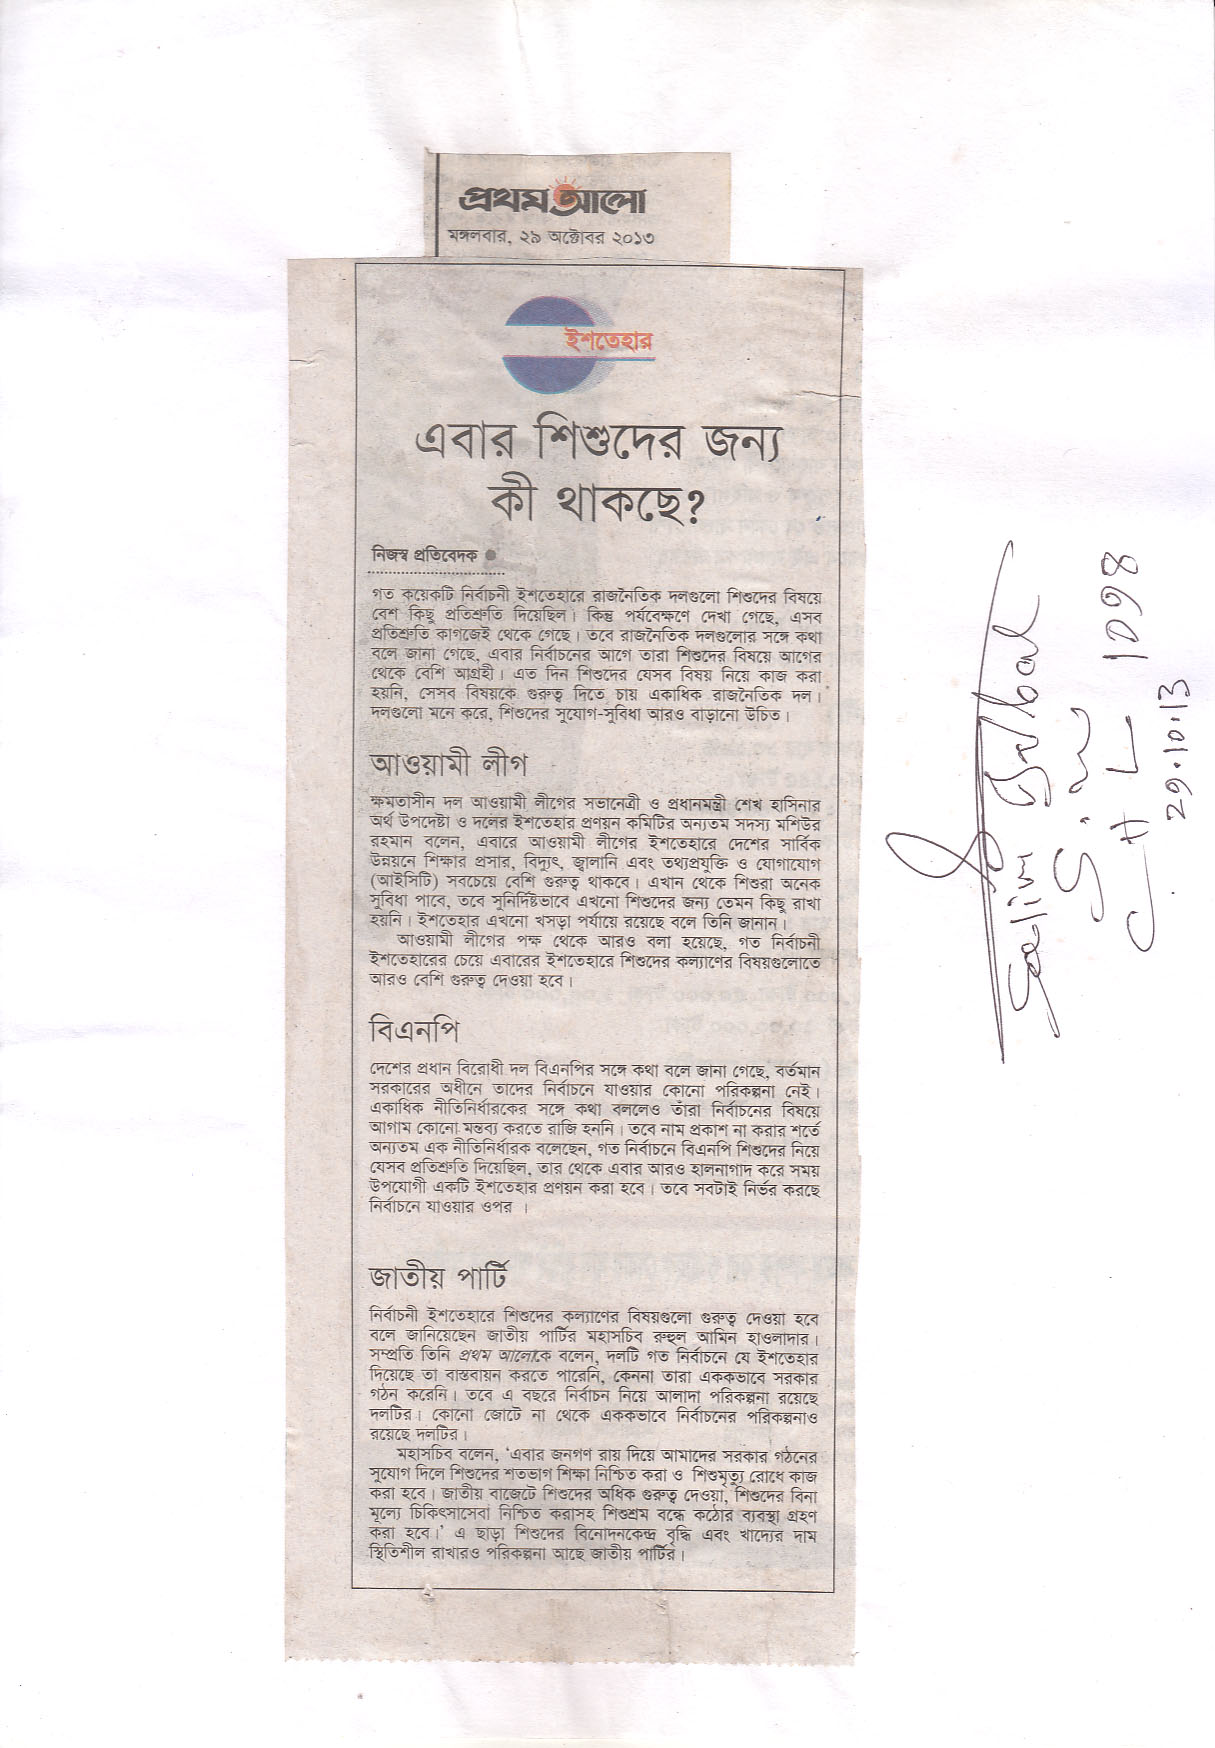 প্রথম আলো
মঙ্গলবার, ২৯ অক্টোবর ২০১৩
ইশতেহার
এবার শিশুদের জন্য
কী থাকছে?
নিজস্ব প্রতিবেদক ●
গত কয়েকটি নির্বাচনী ইশতেহারে রাজনৈতিক দলগুলো শিশুদের বিষয়ে
বেশ কিছু প্রতিশ্রুতি দিয়েছিল। কিন্তু পর্যবেক্ষণে দেখা গেছে, এসব
প্রতিশ্রুতি কাগজেই থেকে গেছে। তবে রাজনৈতিক দলগুলোর সঙ্গে কথা
বলে জানা গেছে, এবার নির্বাচনের আগে তারা শিশুদের বিষয়ে আগের
থেকে বেশি আগ্রহী। এত দিন শিশুদের যেসব বিষয় নিয়ে কাজ করা
হয়নি, সেসব বিষয়কে গুরুত্ব দিতে চায় একাধিক রাজনৈতিক দল।
দলগুলো মনে করে, শিশুদের সুযোগ-সুবিধা আরও বাড়ানো উচিত।
আওয়ামী লীগ
ক্ষমতাসীন দল আওয়ামী লীগের সভানেত্রী ও প্রধানমন্ত্রী শেখ হাসিনার
অর্থ উপদেষ্টা ও দলের ইশতেহার প্রণয়ন কমিটির অন্যতম সদস্য মশিউর
রহমান বলেন, এবারে আওয়ামী লীগের ইশতেহারে দেশের সার্বিক
উন্নয়নে শিক্ষার প্রসার, বিদ্যুৎ, জ্বালানি এবং তথ্যপ্রযুক্তি ও যোগাযোগ
(আইসিটি) সবচেয়ে বেশি গুরুত্ব থাকবে। এখান থেকে শিশুরা অনেক
সুবিধা পাবে, তবে সুনির্দিষ্টভাবে এখনো শিশুদের জন্য তেমন কিছু রাখা
হয়নি। ইশতেহার এখনো খসড়া পর্যায়ে রয়েছে বলে তিনি জানান।
আওয়ামী লীগের পক্ষ থেকে আরও বলা হয়েছে, গত নির্বাচনী
ইশতেহারের চেয়ে এবারের ইশতেহারে শিশুদের কল্যাণের বিষয়গুলোতে
আরও বেশি গুরুত্ব দেওয়া হবে।
বিএনপি
দেশের প্রধান বিরোধী দল বিএনপির সঙ্গে কথা বলে জানা গেছে, বর্তমান
সরকারের অধীনে তাদের নির্বাচনে যাওয়ার কোনো পরিকল্পনা নেই।
একাধিক নীতিনির্ধারকের সঙ্গে কথা বললেও তাঁরা নির্বাচনের বিষয়ে
আগাম কোনো মন্তব্য করতে রাজি হননি। তবে নাম প্রকাশ না করার শর্তে
অন্যতম এক নীতিনির্ধারক বলেছেন, গত নির্বাচনে বিএনপি শিশুদের নিয়ে
যেসব প্রতিশ্রুতি দিয়েছিল, তার থেকে এবার আরও হালনাগাদ করে সময়
উপযোগী একটি ইশতেহার প্রণয়ন করা হবে। তবে সবটাই নির্ভর করছে
নির্বাচনে যাওয়ার ওপর ।
জাতীয় পার্টি
নির্বাচনী ইশতেহারে শিশুদের কল্যাণের বিষয়গুলো গুরুত্ব দেওয়া হবে
বলে জানিয়েছেন জাতীয় পার্টির মহাসচিব রুহুল আমিন হাওলাদার।
সম্প্রতি তিনি প্রথম আলোকে বলেন, দলটি গত নির্বাচনে যে ইশতেহার
দিয়েছে তা বাস্তবায়ন করতে পারেনি, কেননা তারা এককভাবে সরকার
গঠন করেনি। তবে এ বছরে নির্বাচন নিয়ে আলাদা পরিকল্পনা রয়েছে
দলটির। কোনো জোটে না থেকে এককভাবে নির্বাচনের পরিকল্পনাও
রয়েছে দলটির।
মহাসচিব বলেন, ‘এবার জনগণ রায় দিয়ে আমাদের সরকার গঠনের
সুযোগ দিলে শিশুদের শতভাগ শিক্ষা নিশ্চিত করা ও শিশুমৃত্যু রোধে কাজ
করা হবে। জাতীয় বাজেটে শিশুদের অধিক গুরুত্ব দেওয়া, শিশুদের বিনা
মূল্যে চিকিৎসাসেবা নিশ্চিত করাসহ শিশুশ্রম বন্ধে কঠোর ব্যবস্থা গ্রহণ
করা হবে।’ এ ছাড়া শিশুদের বিনোদনকেন্দ্র বৃদ্ধি এবং খাদ্যের দাম
স্থিতিশীল রাখারও পরিকল্পনা আছে জাতীয় পার্টির।
CHL 1098
29.10.13